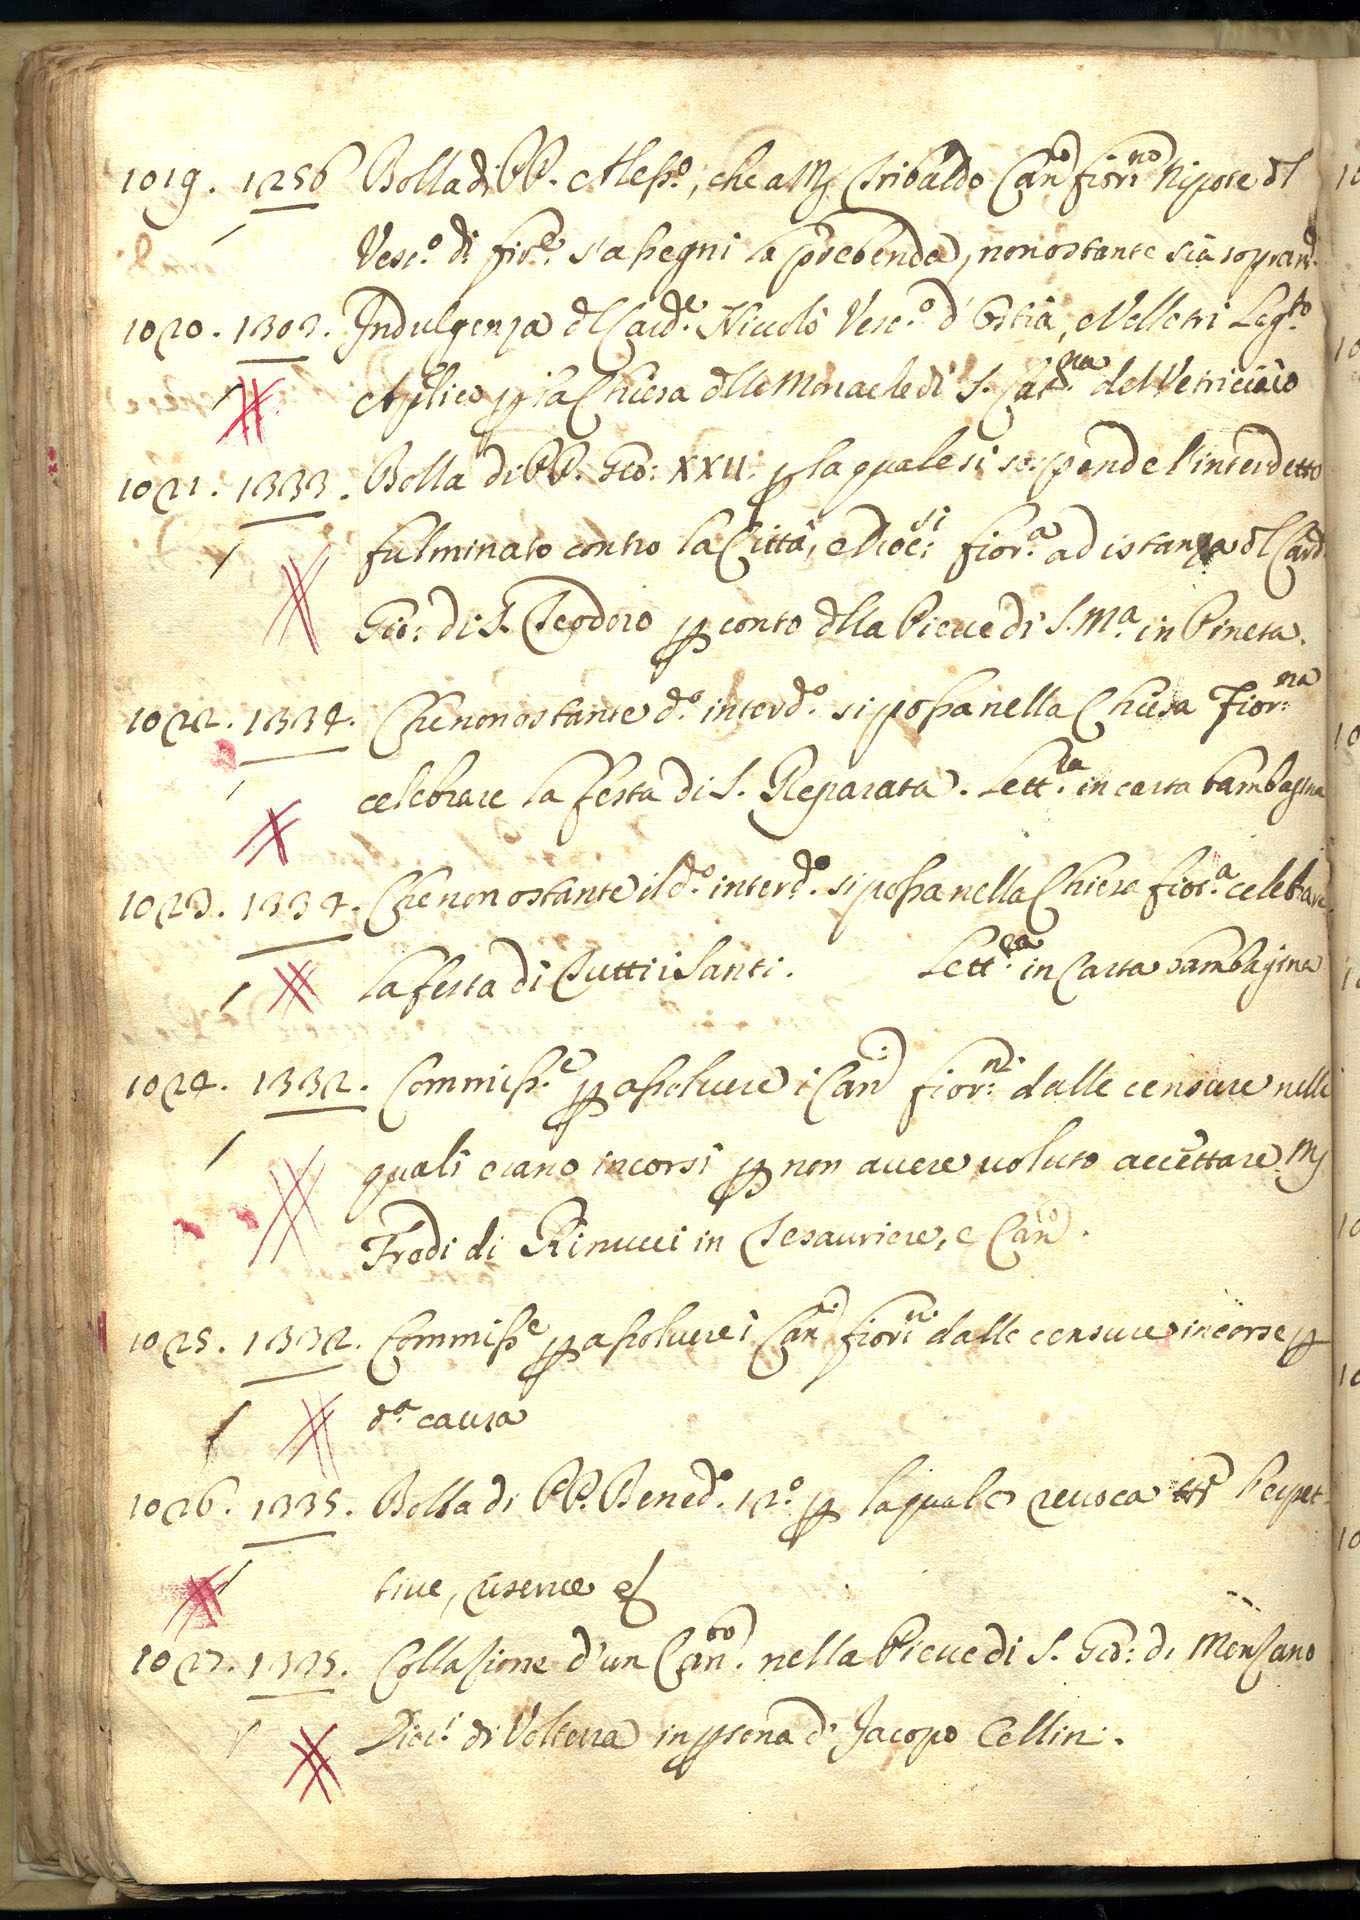 1019. 1256 Bolla di PP. Aless.o, che a M. Tribaldo Can.co fior.no Nipote dl
Vesc.o di fior.e s'assegni la prebenda, nonostante sia sopran.o
1020. 1303. Indulgenza dl Card.e Niccolò Vesc.o d'Ostia, e Velletri Leg.to
Aplico p la Chiesa dlle Monache di S. Cat.na del Vetriciaio
1021. 1333. Bolla di PP. Gio: XXII. p la quale si sospende l'interdetto
fulminato contro la Città, e Dioc.si fior.a ad istanza dl Card.
Gio: di S. Teodoro p conto dlla Pieve di S. M.a in Pineta.
1022. 1334. Che nonostante d.o interd.o si possa nella Chiesa Fior.na
celebrare la festa di S. Reparata. Lett.ra in carta bambagina
1023. 1334. Che nonostante il d.o interd.o si possa nella Chiesa fior.a celebrare
la festa di Tutti i Santi. Lett.ra in Carta bambagina
1024. 1332. Commiss.e p assolvere i Can.i fior.ni dalle censure nelle
quali erano incorsi p non avere voluto accettare M.
Fredi di Rinucci in Tesauriere, e Can.o.
1025. 1332. Commiss.e p assolvere i Can.i fior.ni dalle censure incorse p
d.a causa
1026. 1335. Bolla di PP. Bened.o 12.o p la quale revoca tt.e l'espet=
tive, riserve
1027. 1335. Collazione d'un Can.to nella Pieve di S. Gio: di Monzano
Dioc.i di Volterra in psona di Jacopo Cellini.